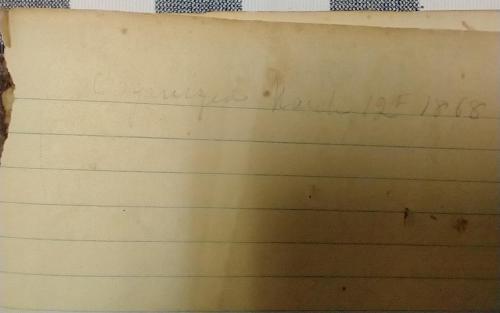 Organized March 12th 1868